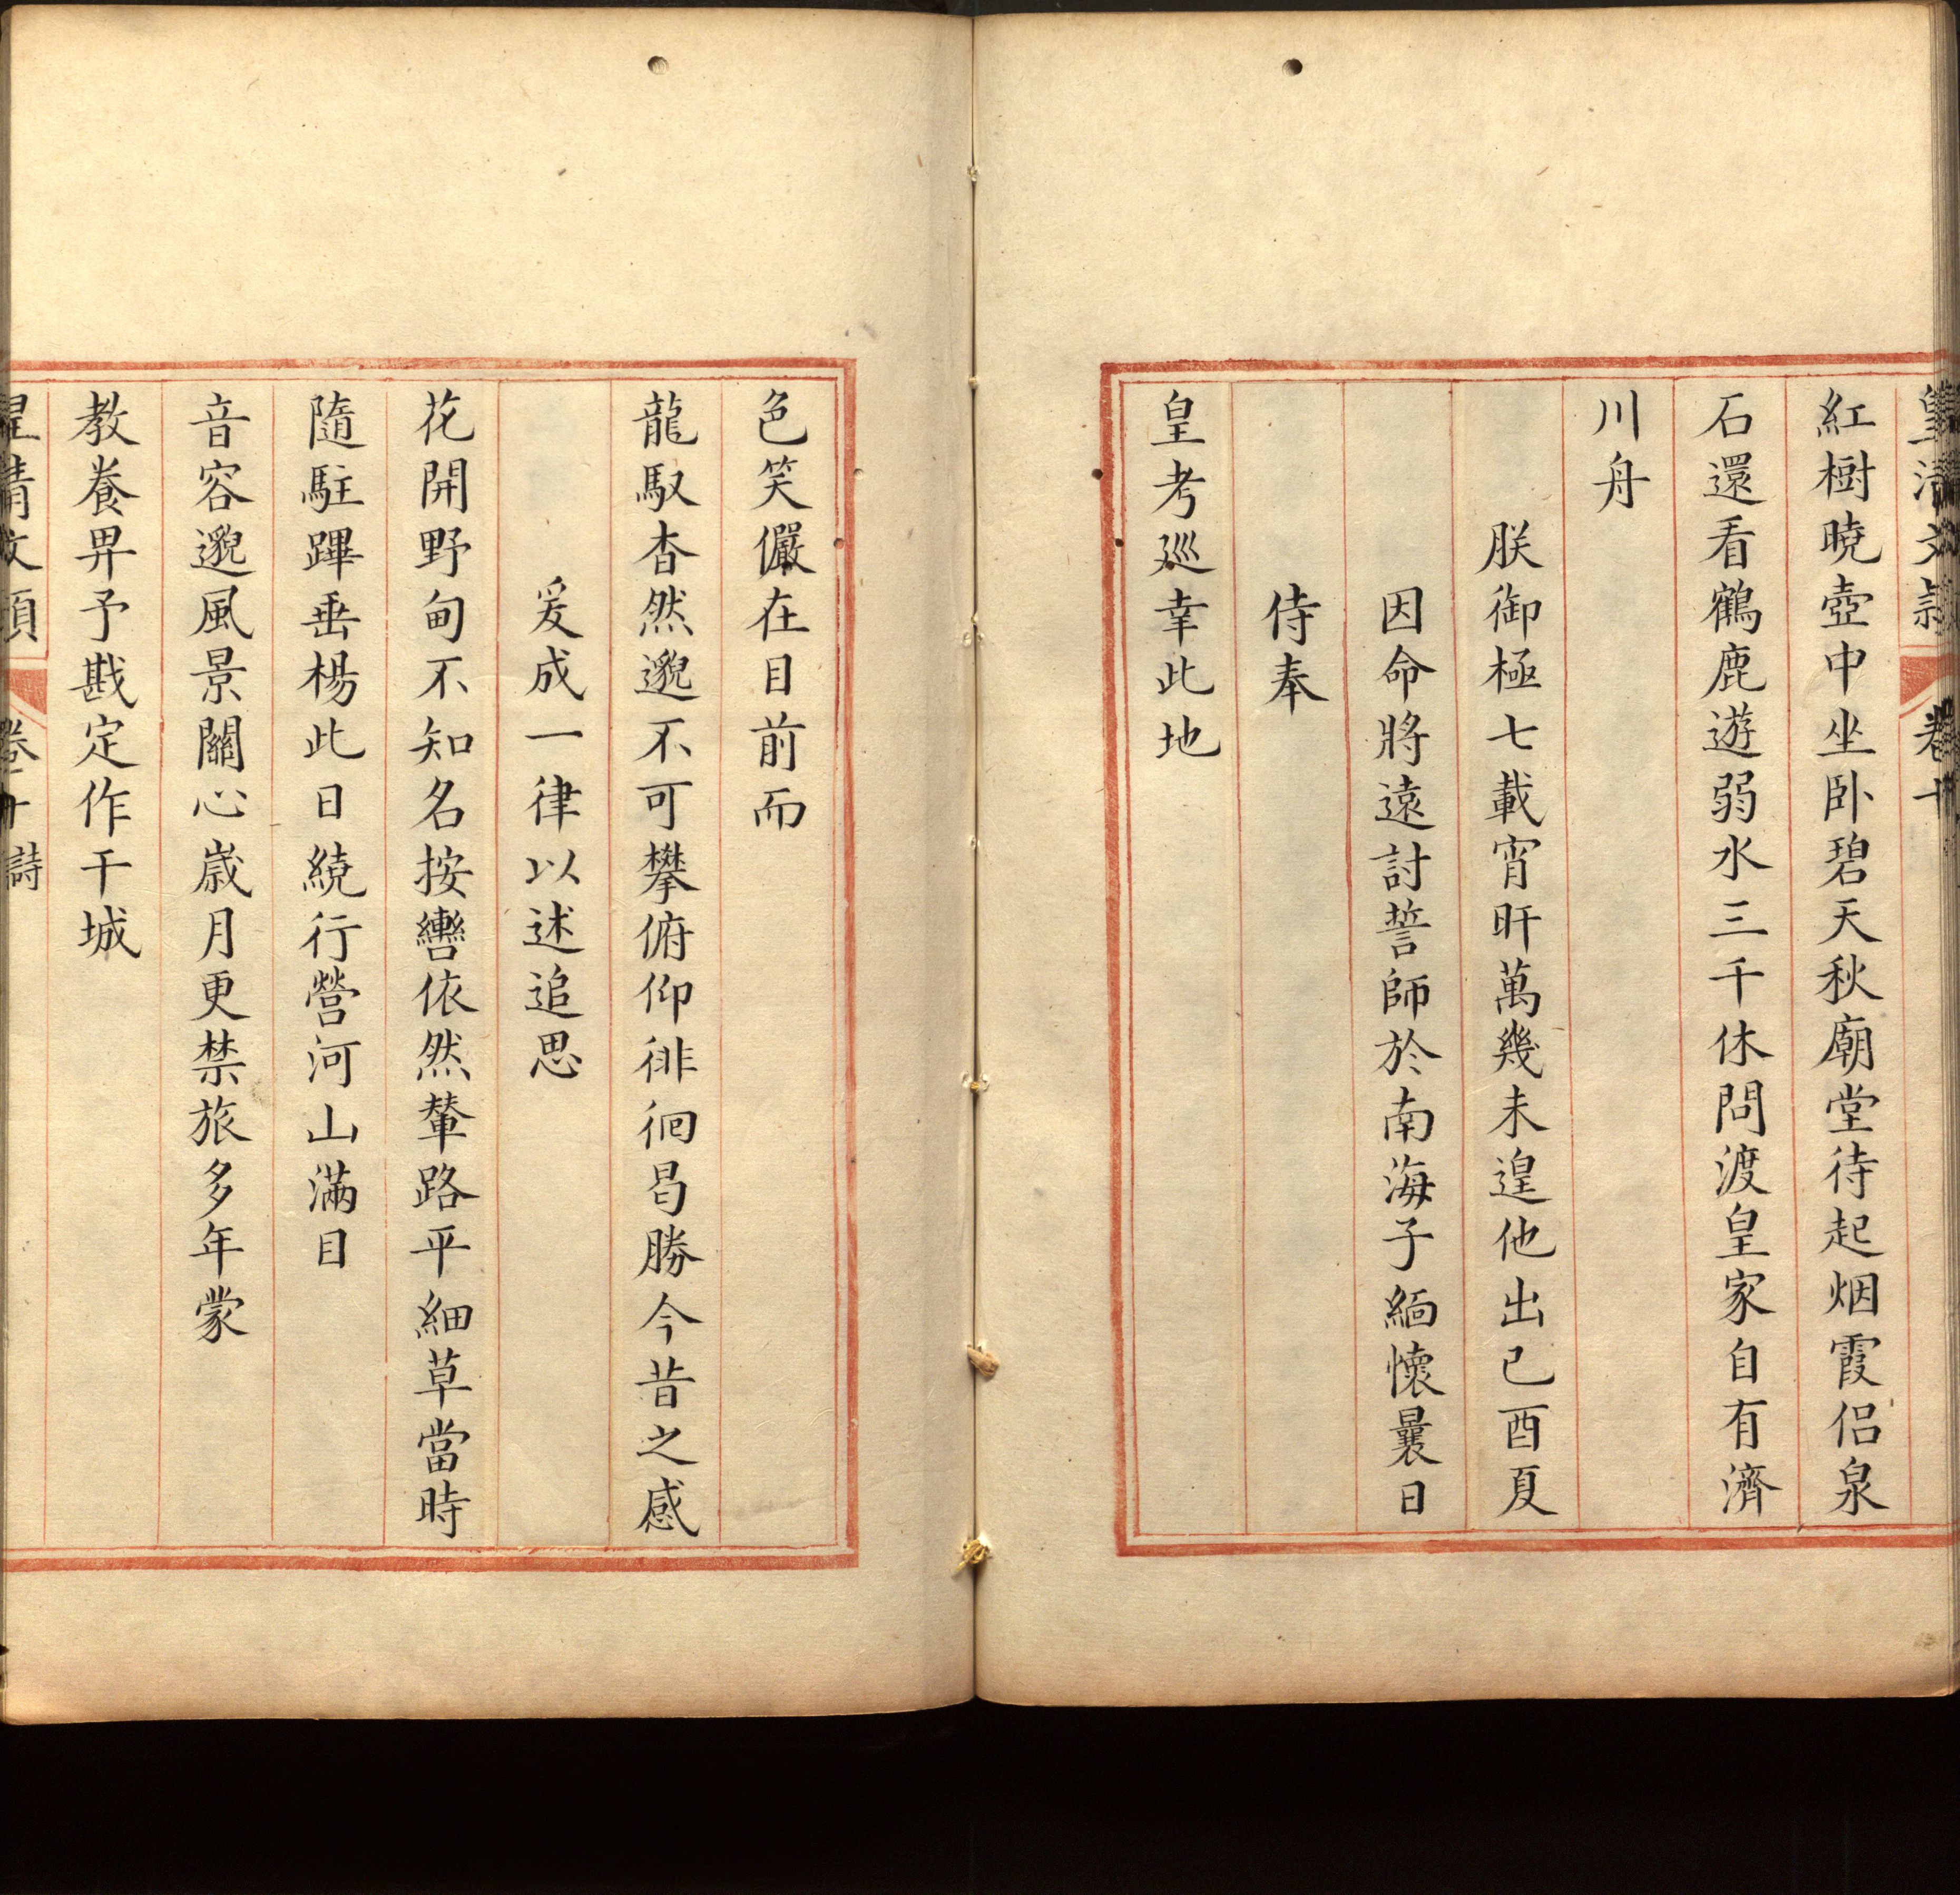 皇清文穎 卷十
紅樹曉壺中坐卧碧天秋廟堂待起烟霞侣泉
石還看鶴鹿遊弱水三千休問渡皇家自有濟
川舟
朕御極七載宵旰萬幾未遑他出已酉夏
因命將遠討誓師於南海子緬懷曩日
侍奉
皇考廵幸此地
色笑儼在目前而
龍馭杳然邈不可攀俯仰徘徊曷勝今昔之感
爰成一律以述追思
花開野甸不知名按轡依然輦路平細草當時
隨駐蹕垂楊此日繞行營河山滿目
音容邈風景關心嵗月更禁旅多年蒙
教養畀予戡定作干城
皇清文穎 卷十 詩